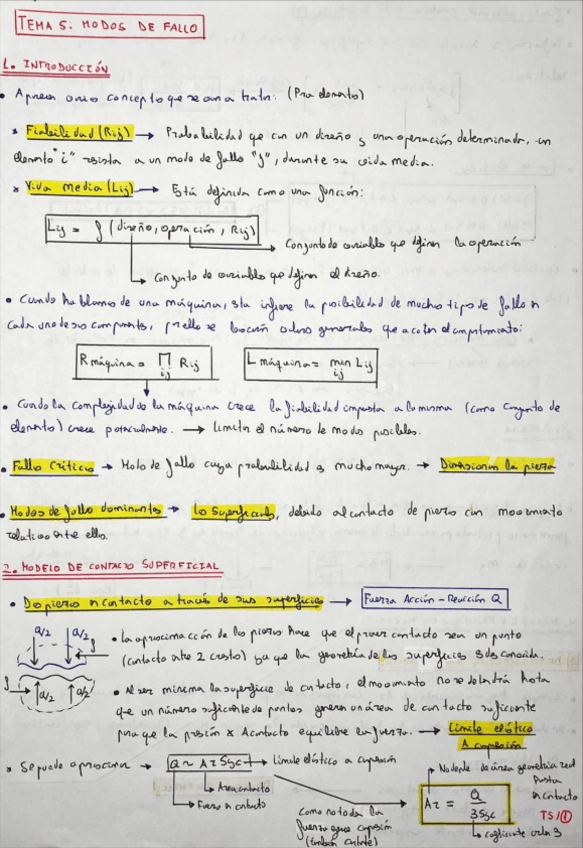 TEMA 5: MODOS DE FALLO
1. INTRODUCCIÓN
• Aparecen varios conceptos que se van a tratar: (Para elemento)
* Fiabilidad (Rij) → Probabilidad que con un diseño y una operación determinada, un
elemento "i" resista a un modo de fallo "j", durante su vida media.
* Vida media (Lij) → Está definida como una función:
Lij = f (diseño, operación, Rij)
→ Conjunto de variables que definen la operación
→ Conjunto de variables que definen el diseño.
• Cuando hablamos de una máquina, esta infiere la posibilidad de muchos tipos de fallo en
cada uno de sus componentes, por ello se buscarán valores generales que acoten el comportamiento:
R máquina = ∏ij Rij
L máquina = min ij Lij
• Cuando la complejidad de la máquina crece la fiabilidad impuesta a la misma (como conjunto de
elementos) crece potencialmente. → Limitar el número de modos posibles.
• Fallo Crítico → Modo de fallo cuya probabilidad es mucho mayor. → Dimensionan la pieza
• Modos de fallo dominantes → Los Superficiales, debido al contacto de piezas con movimiento
relativo entre ellas.
2. MODELO DE CONTACTO SUPERFICIAL
• Dos piezas en contacto a través de sus superficies → Fuerza Acción - Reacción Q
Q/2 Q/2
• La aproximación de las piezas hace que el primer contacto sea un punto
(contacto entre 2 crestas) ya que la geometría de las superficies es desconocida.
Q/2 Q/2
• Al ser mínima la superficie de contacto, el movimiento no se detendrá hasta
que un número suficiente de puntos generen un área de contacto suficiente
para que la presión x A contacto equilibre la fuerza. → Límite elástico
A compresión
* Se puede aproximar → Q ~ Ar Syc → Límite elástico a compresión
→ Área contacto
→ Fuerza en contacto
Como no toda la
fuerza genera compresión
(también cortante)
→ No depende de área geométrica real
puesta
en contacto
Ar = Q / 3 Syc
→ coeficiente vale 3
T5/①